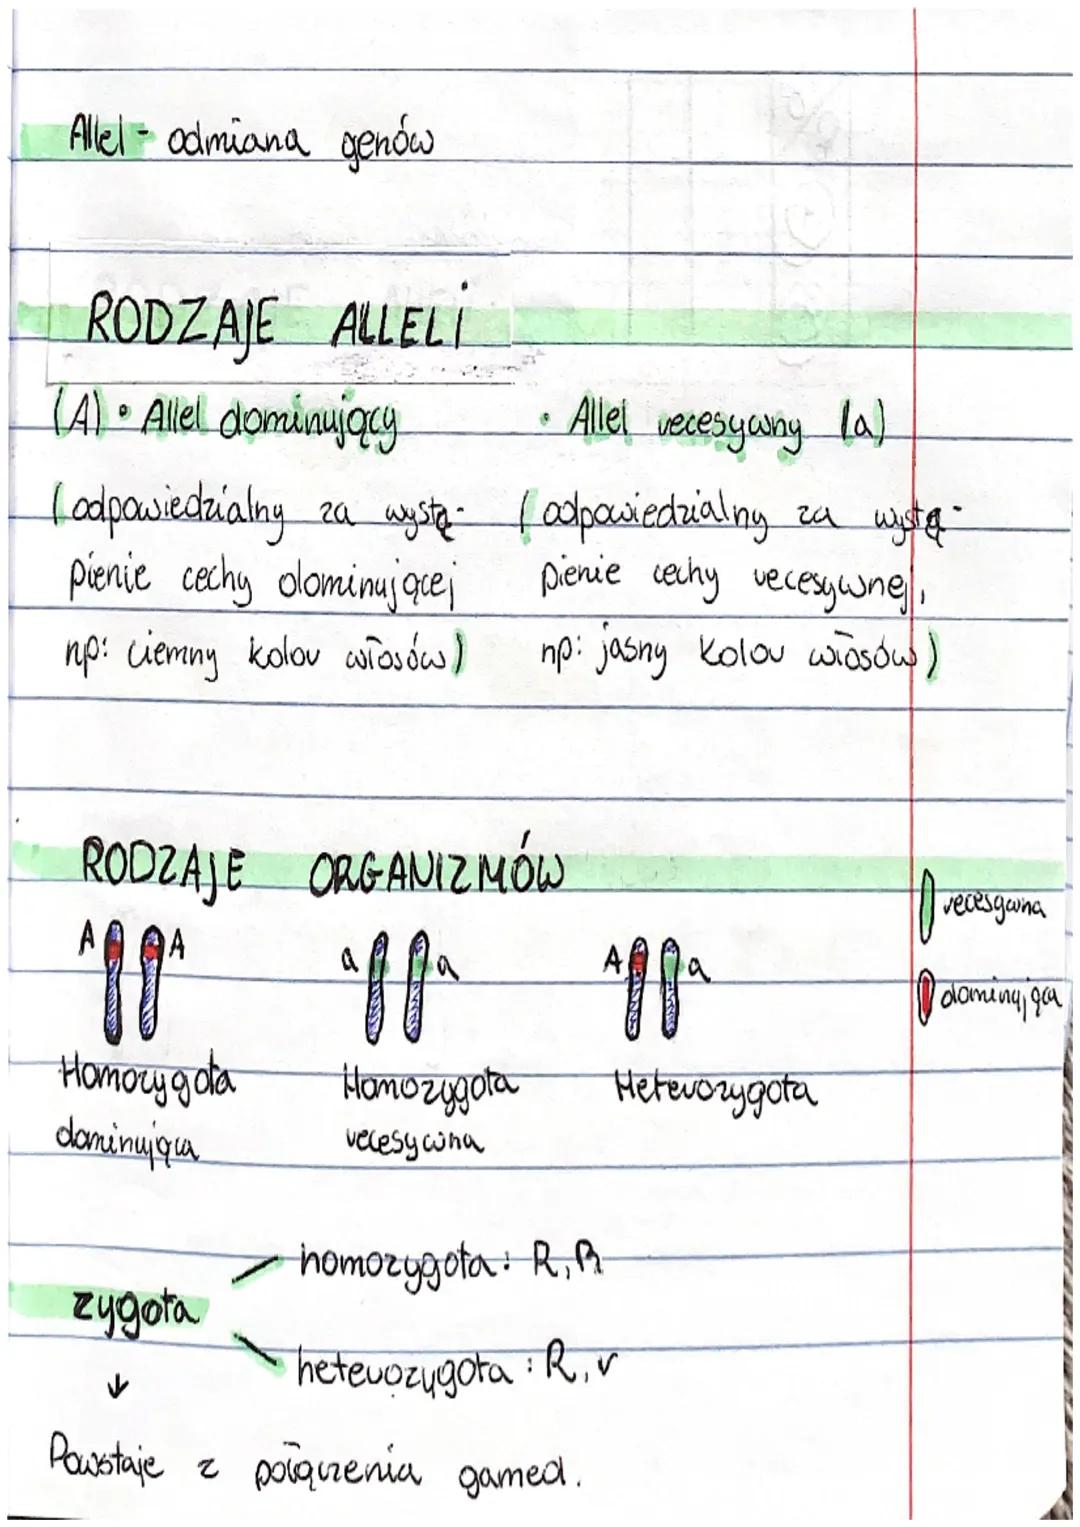 Allel - odmiana genów
RODZAJE ALLELI
(A) • Allel dominujący
(odpowiedzialny za wystą-
pienie cechy dominującej
np: ciemny kolor włosów)
• Allel recesywny (a)
(odpowiedzialny za wystą-
pienie cechy recesywnej,
np: jasny kolor włosów)
RODZAJE ORGANIZMÓW
A A
a a
A a
recesywna
dominująca
Homozygota
dominująca
Homozygota
recesywna
Heterozygota
zygota
homozygota: R, R
heterozygota: R, r
↓
Powstaje z połączenia gamed.